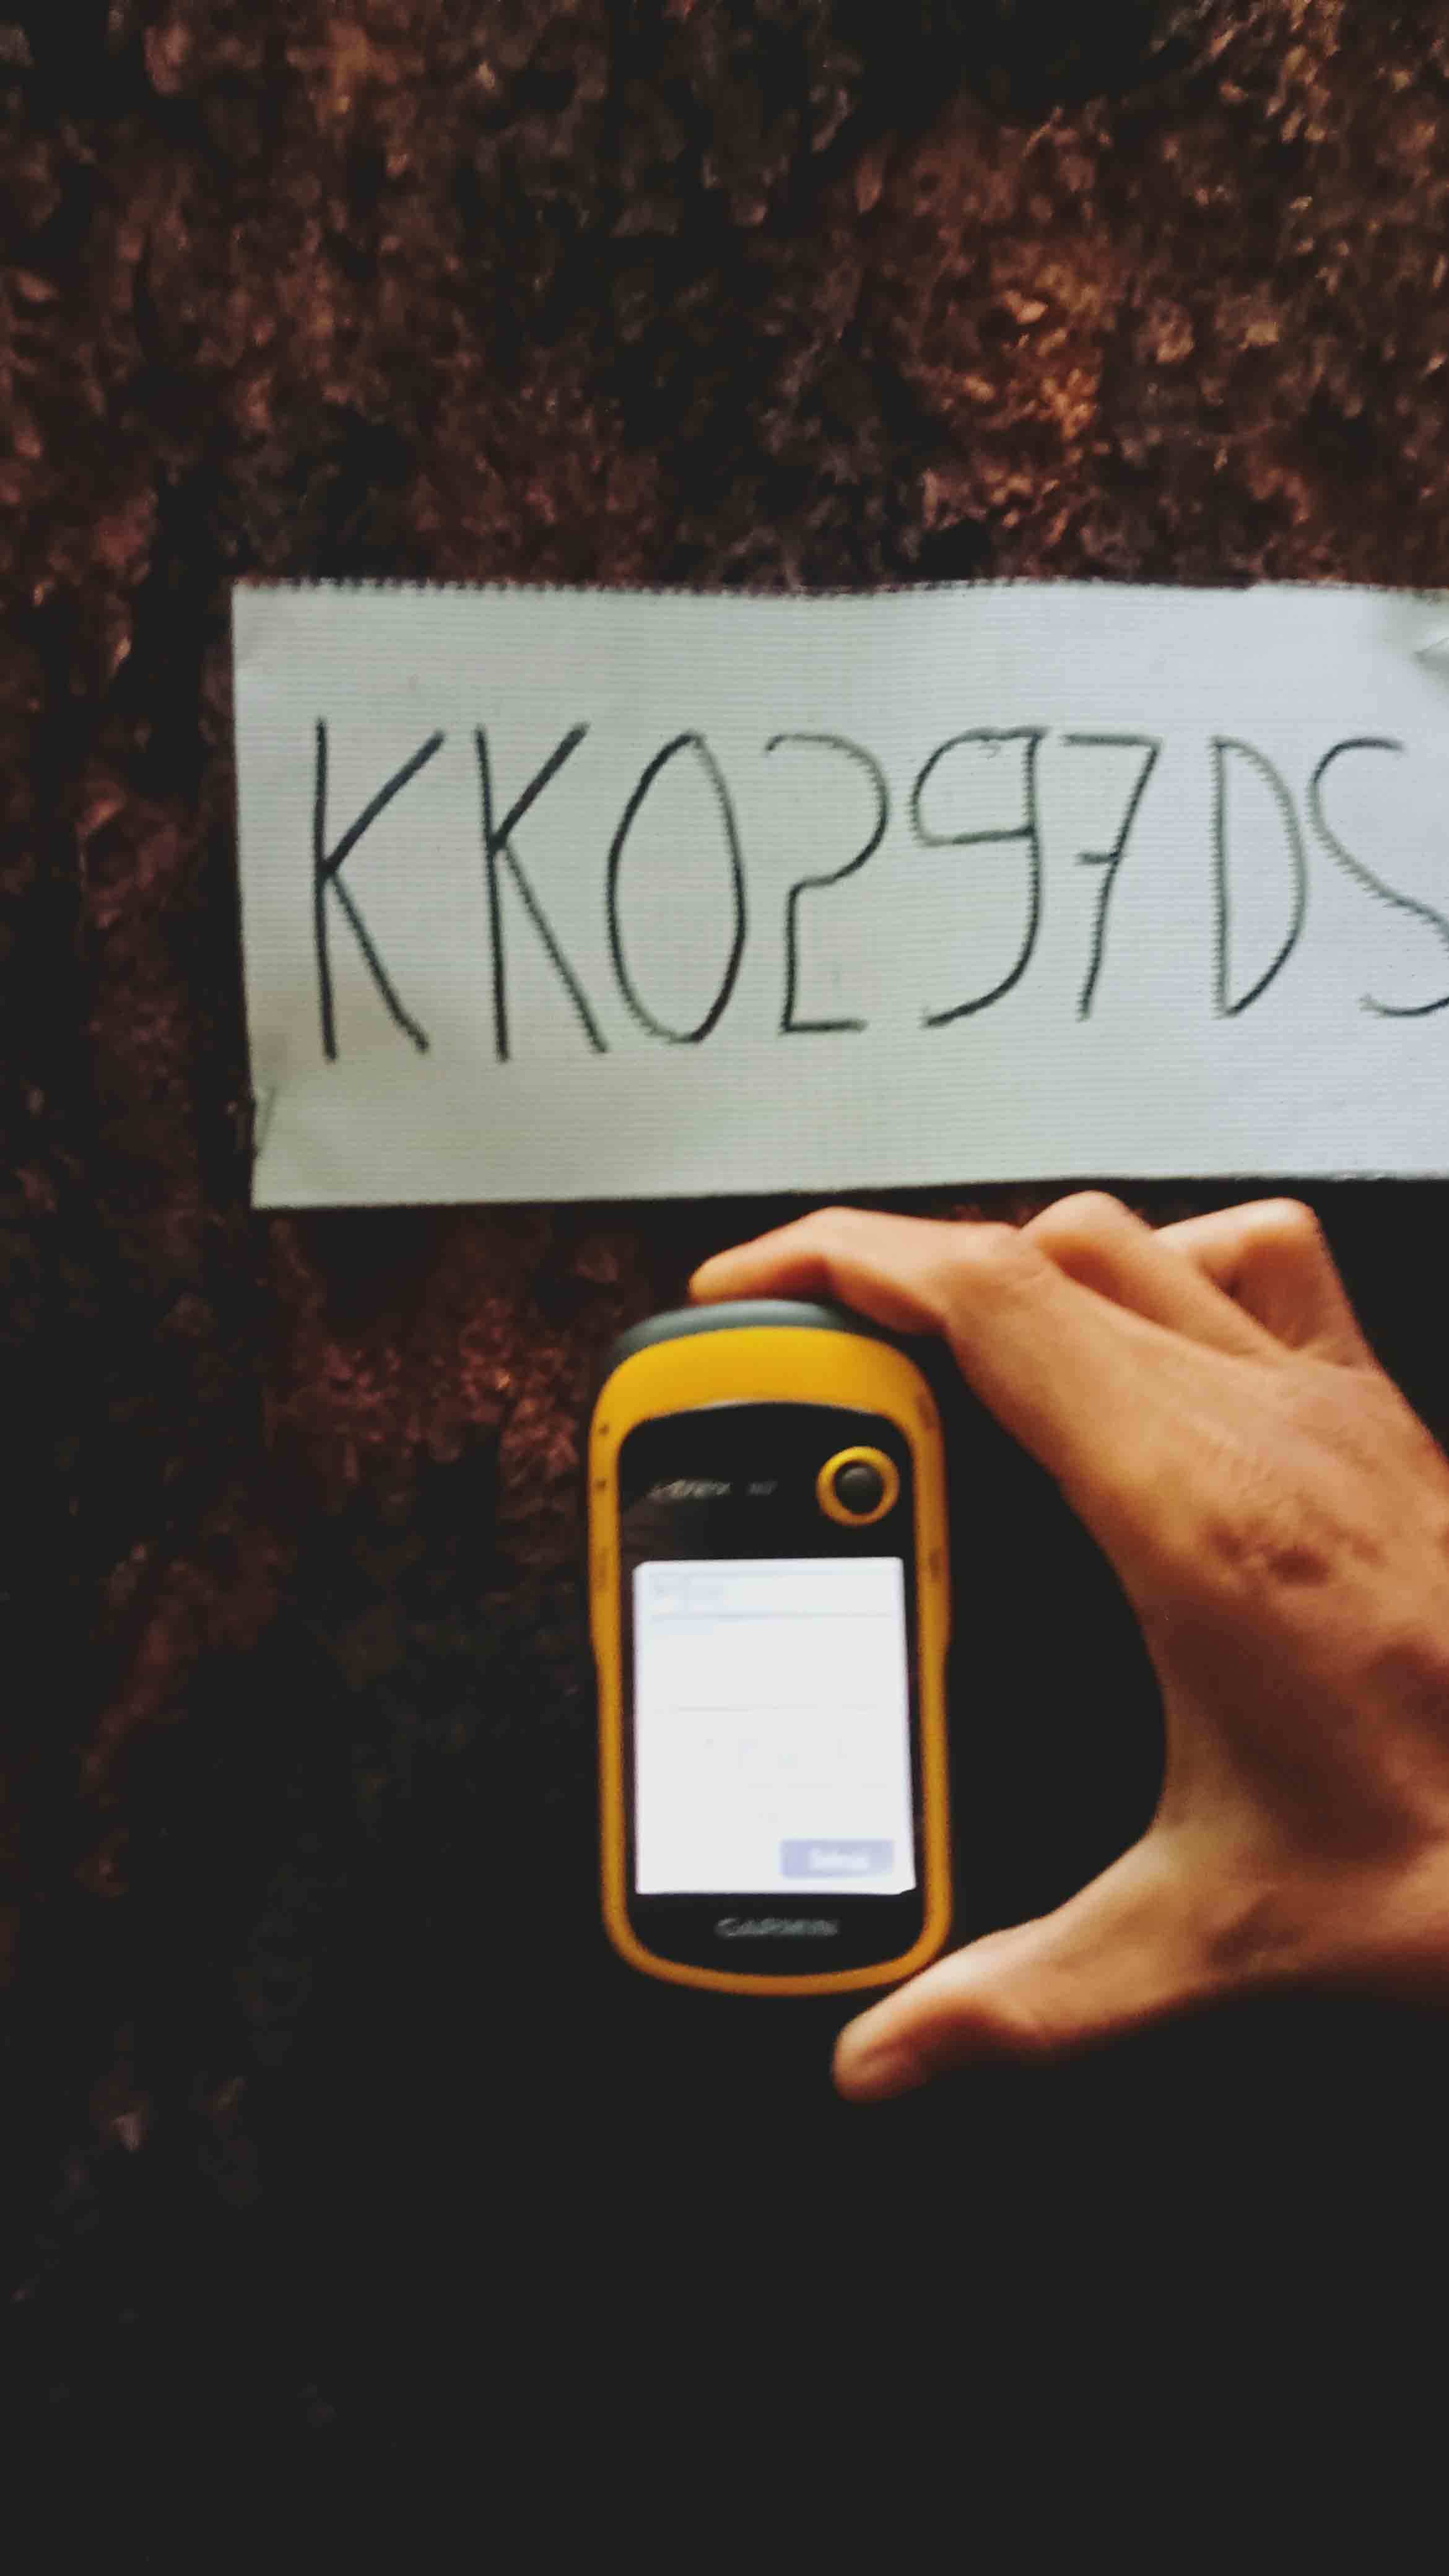 KK0297DS
eTrex 10
GARMIN